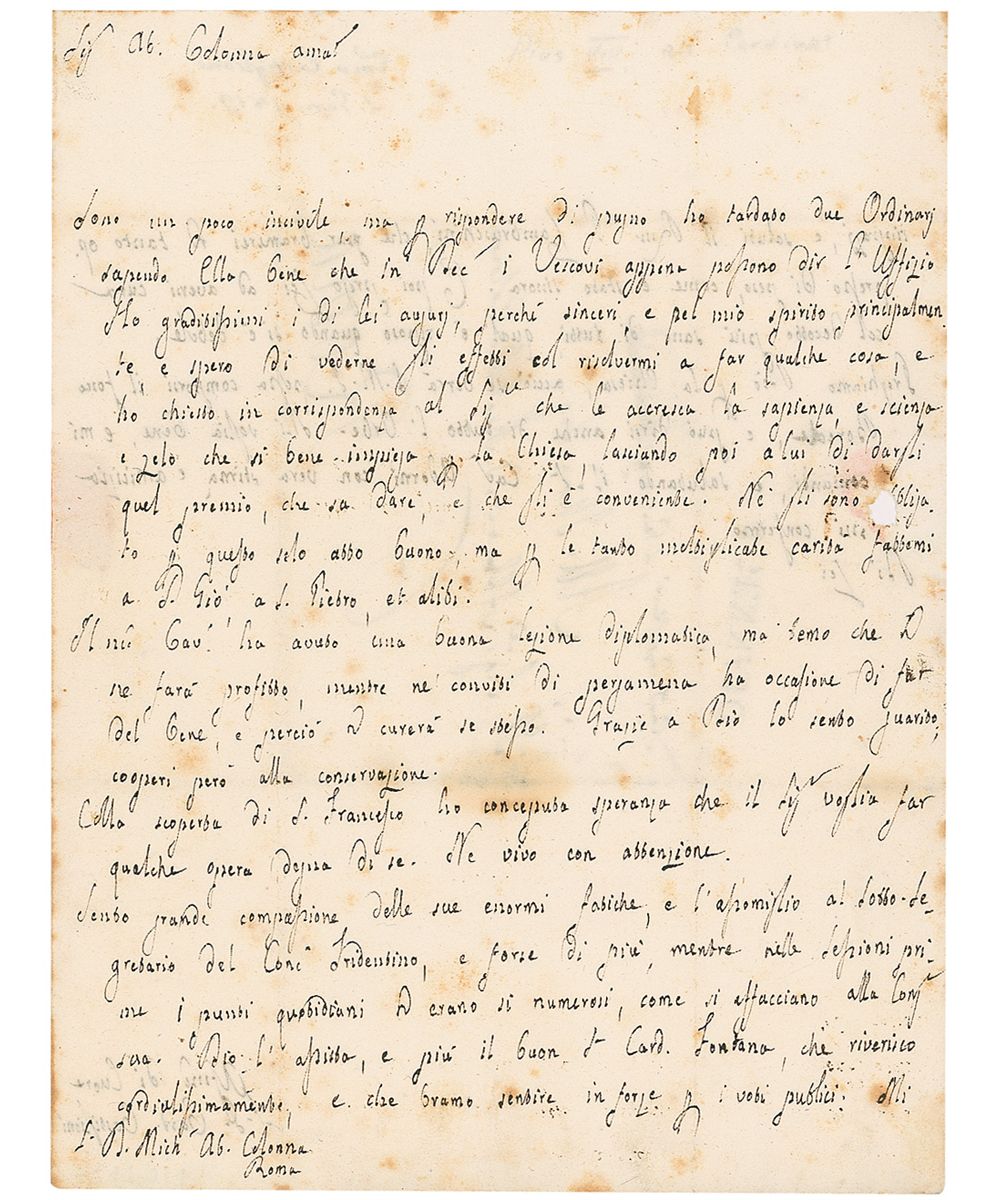 Sig. Ab. Colonna amat.
Sono un poco incivile, ma p rispondere di pugno ho tardato due Ordinarj
sapendo Ella bene che in Dec. i Vescovi appena possono dir l'Uffizio
Ho graditissimi i di lei augurj, perché sinceri, e pel mio spirito principalmen
te, e spero di vederne gli effetti col risolvermi a far qualche cosa, e
ho chiesto in corrispondenza al Sig.re che le accresca la sapienza, e scienza
e zelo che si bene impiega p la Chiesa, lasciando poi a lui di dargli
quel premio, che sa dare, e che gli è conveniente. Né gli sono obbliga-
to p questo solo atto buono, ma p le tanto moltiplicate carità fattemi
a S. Gio. a S. Pietro, et alibi.
Il Cav. ha avuto una buona lezione diplomatica, ma temo che
ne farà profitto, mentre ne' conviti di pergamena ha occasione di far
del bene, e perciò curerà se stesso. Grazie a Dio lo sento guarito,
cooperi però alla conservazione.
Colla scoperta di S. Francesco ho concepita speranza che il Sig.r voglia far
qualche opera degna di se. Ne vivo con attenzione.
Sento grande compassione delle sue enormi fatiche, e l'assomiglio al Sotto-Se-
gretario del Conc. Tridentino, e forse di più, mentre nelle Sessioni pri-
me i punti quotidiani erano si numerosi, come si affacciano alla Cong.
sua. Dio l'assista, e più il buon S.r Card. Fontana, che riverisco
cordialissimamente, e che bramo sentire in forze p i voti publici. Mi
S. D. Mich. Ab. Colonna
Roma